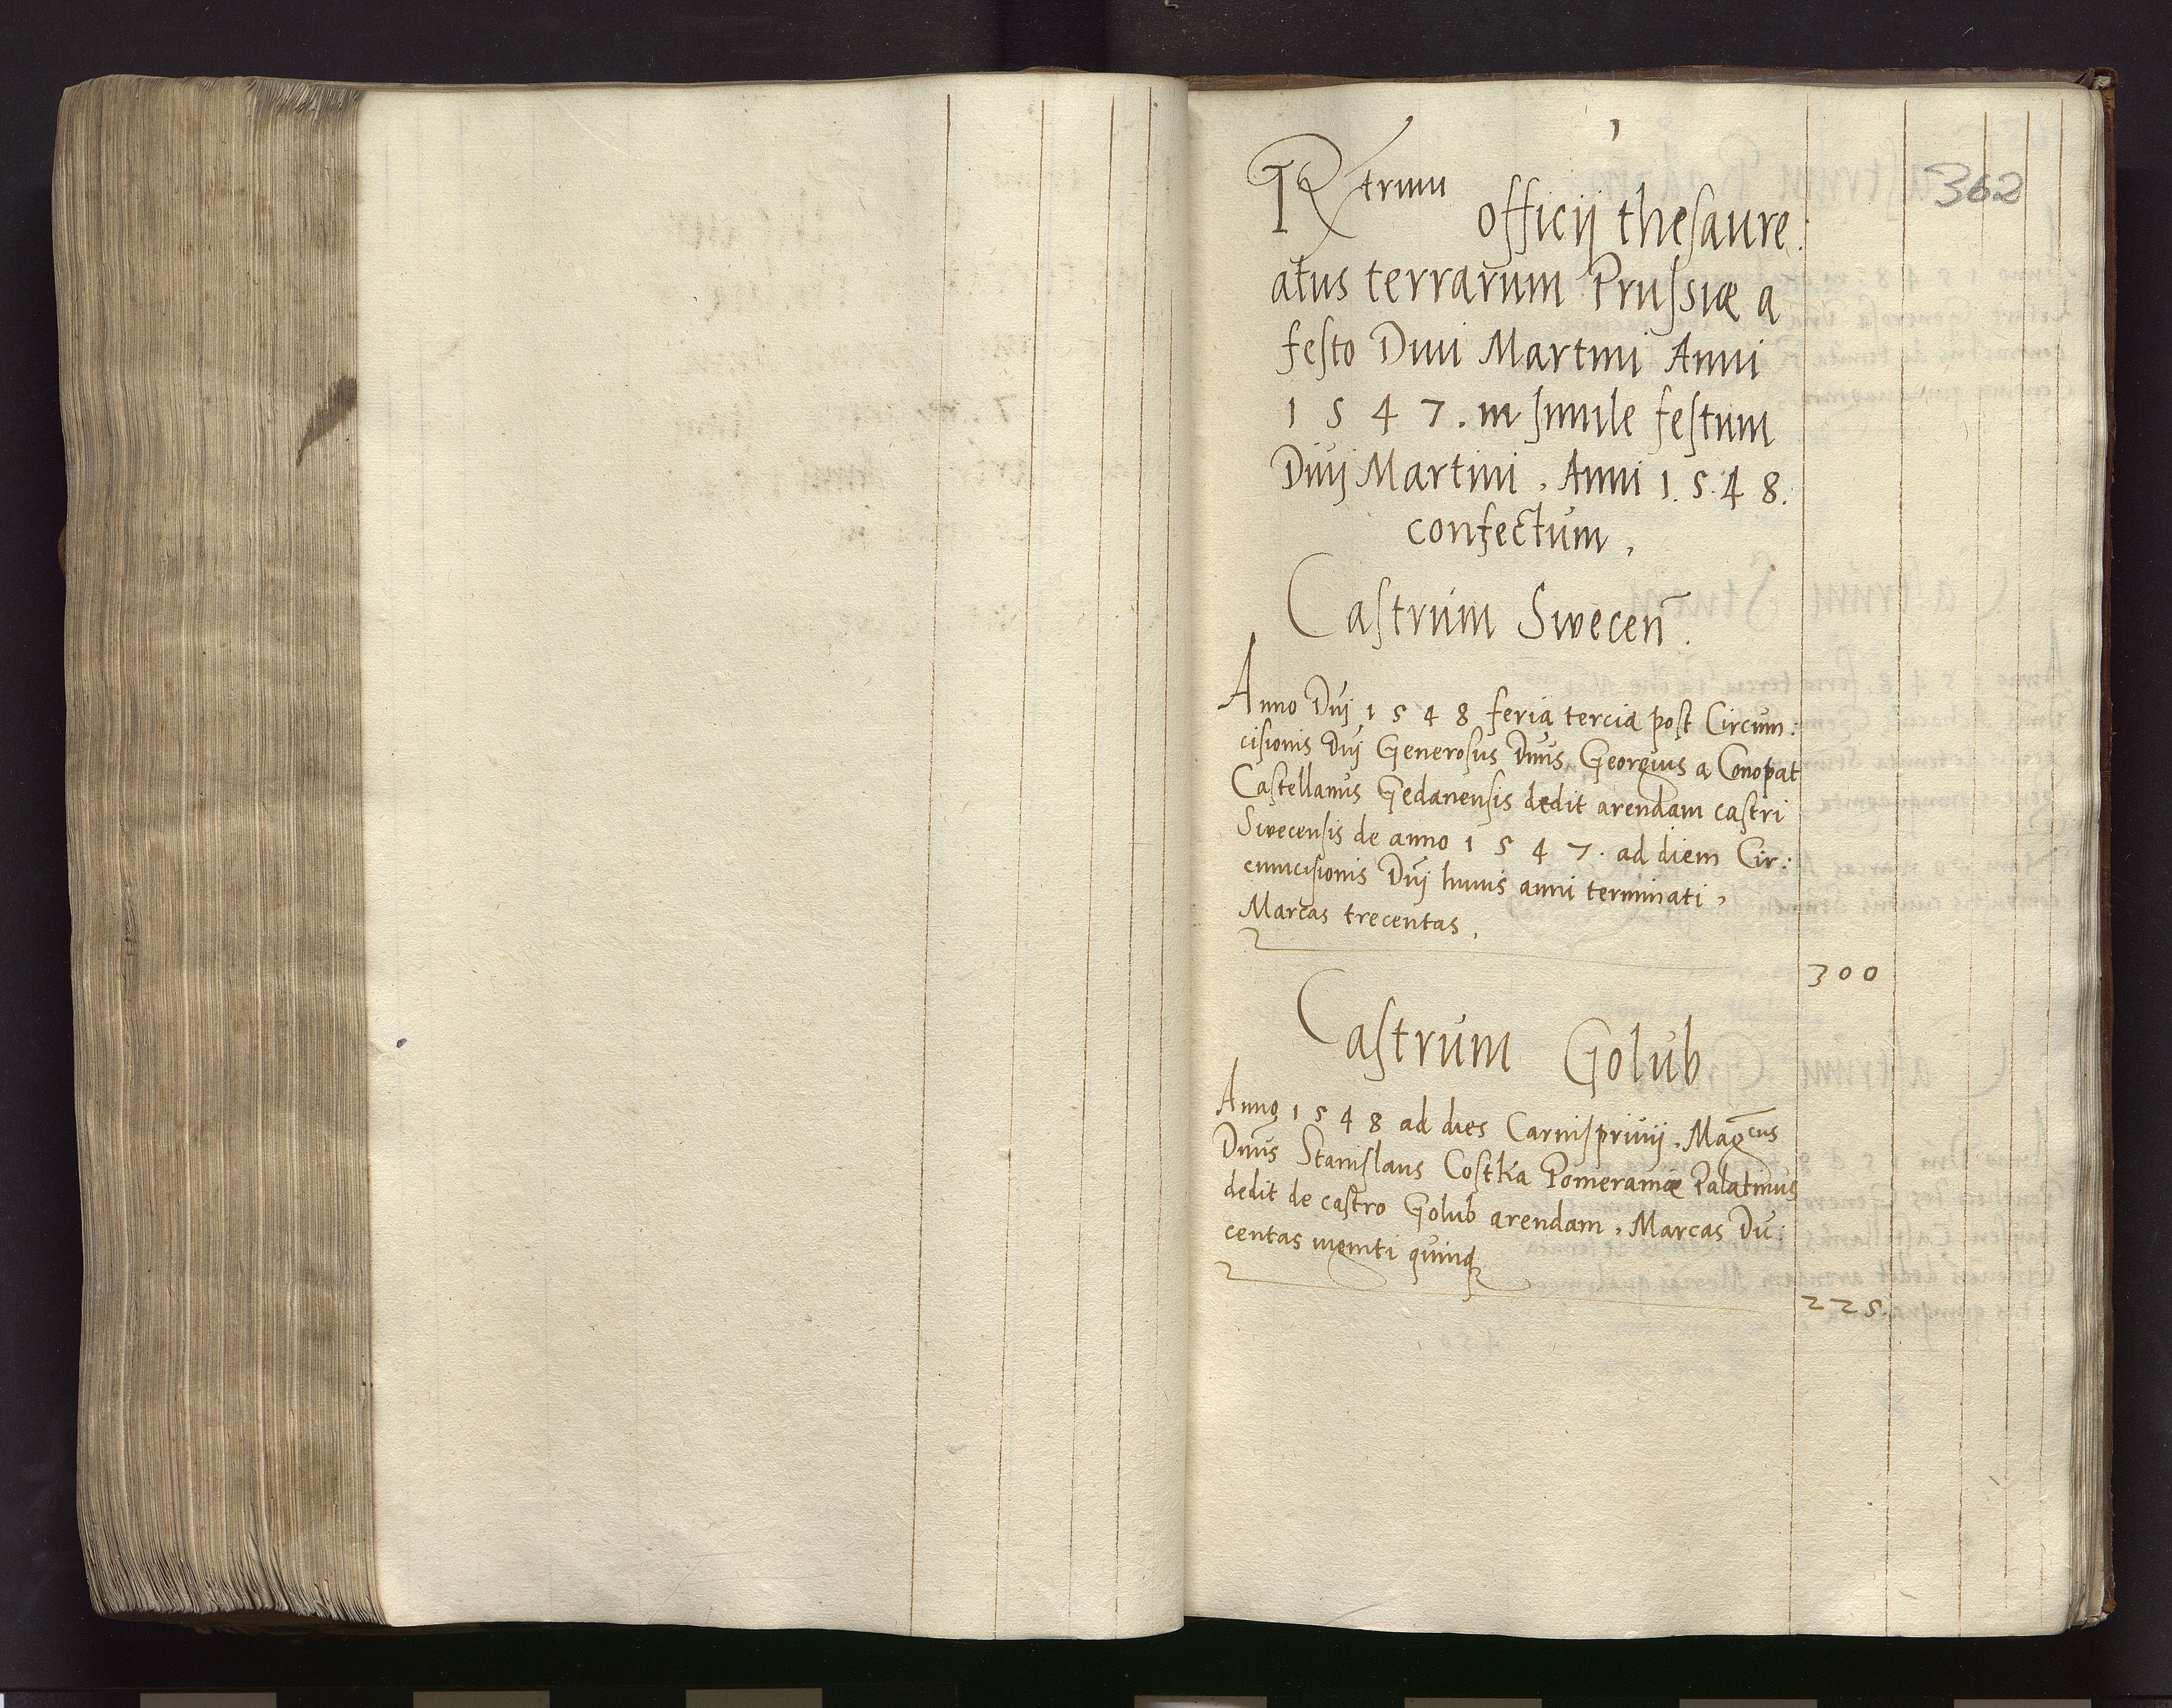 1
362
Rxtrum officij thesaure:
atus terrarum Prussiæ a
festo Divi Martini Anni
1 5 4 7. in simile festum
Divj Martini, Anni 1.5.4 8.
confectum,
Castrum Swecen̄.
Anno Dn̄j 1 5 4 8 feria tercia post Circum:
cisionis Dn̄j Generosus Dn̄us Georgius a Conopat
Castellanus Gedanensis dedit arendam castri
Swecensis de anno 1 5 4 7. ad diem Cir:
cumcisionis Dn̄j huius anni terminati,
Marcas trecentas,
300
Castrum Golub
Anno 1 5 4 8 ad dies Carnisprivij, Mag̅cus
Dn̄us Stanislaus Costka Pomeraniæ Palatinus
dedit de castro Golub arendam, Marcas Du:
centas viginti quinq
225.